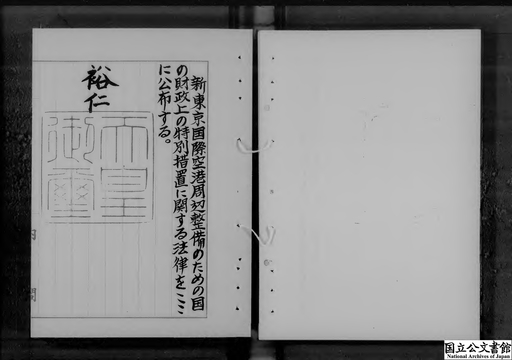 新東京国際空港周辺整備のための国
の財政上の特別措置に関する法律をここ
に公布する。
裕仁
天皇
御璽
国立公文書館
National Archives of Japan